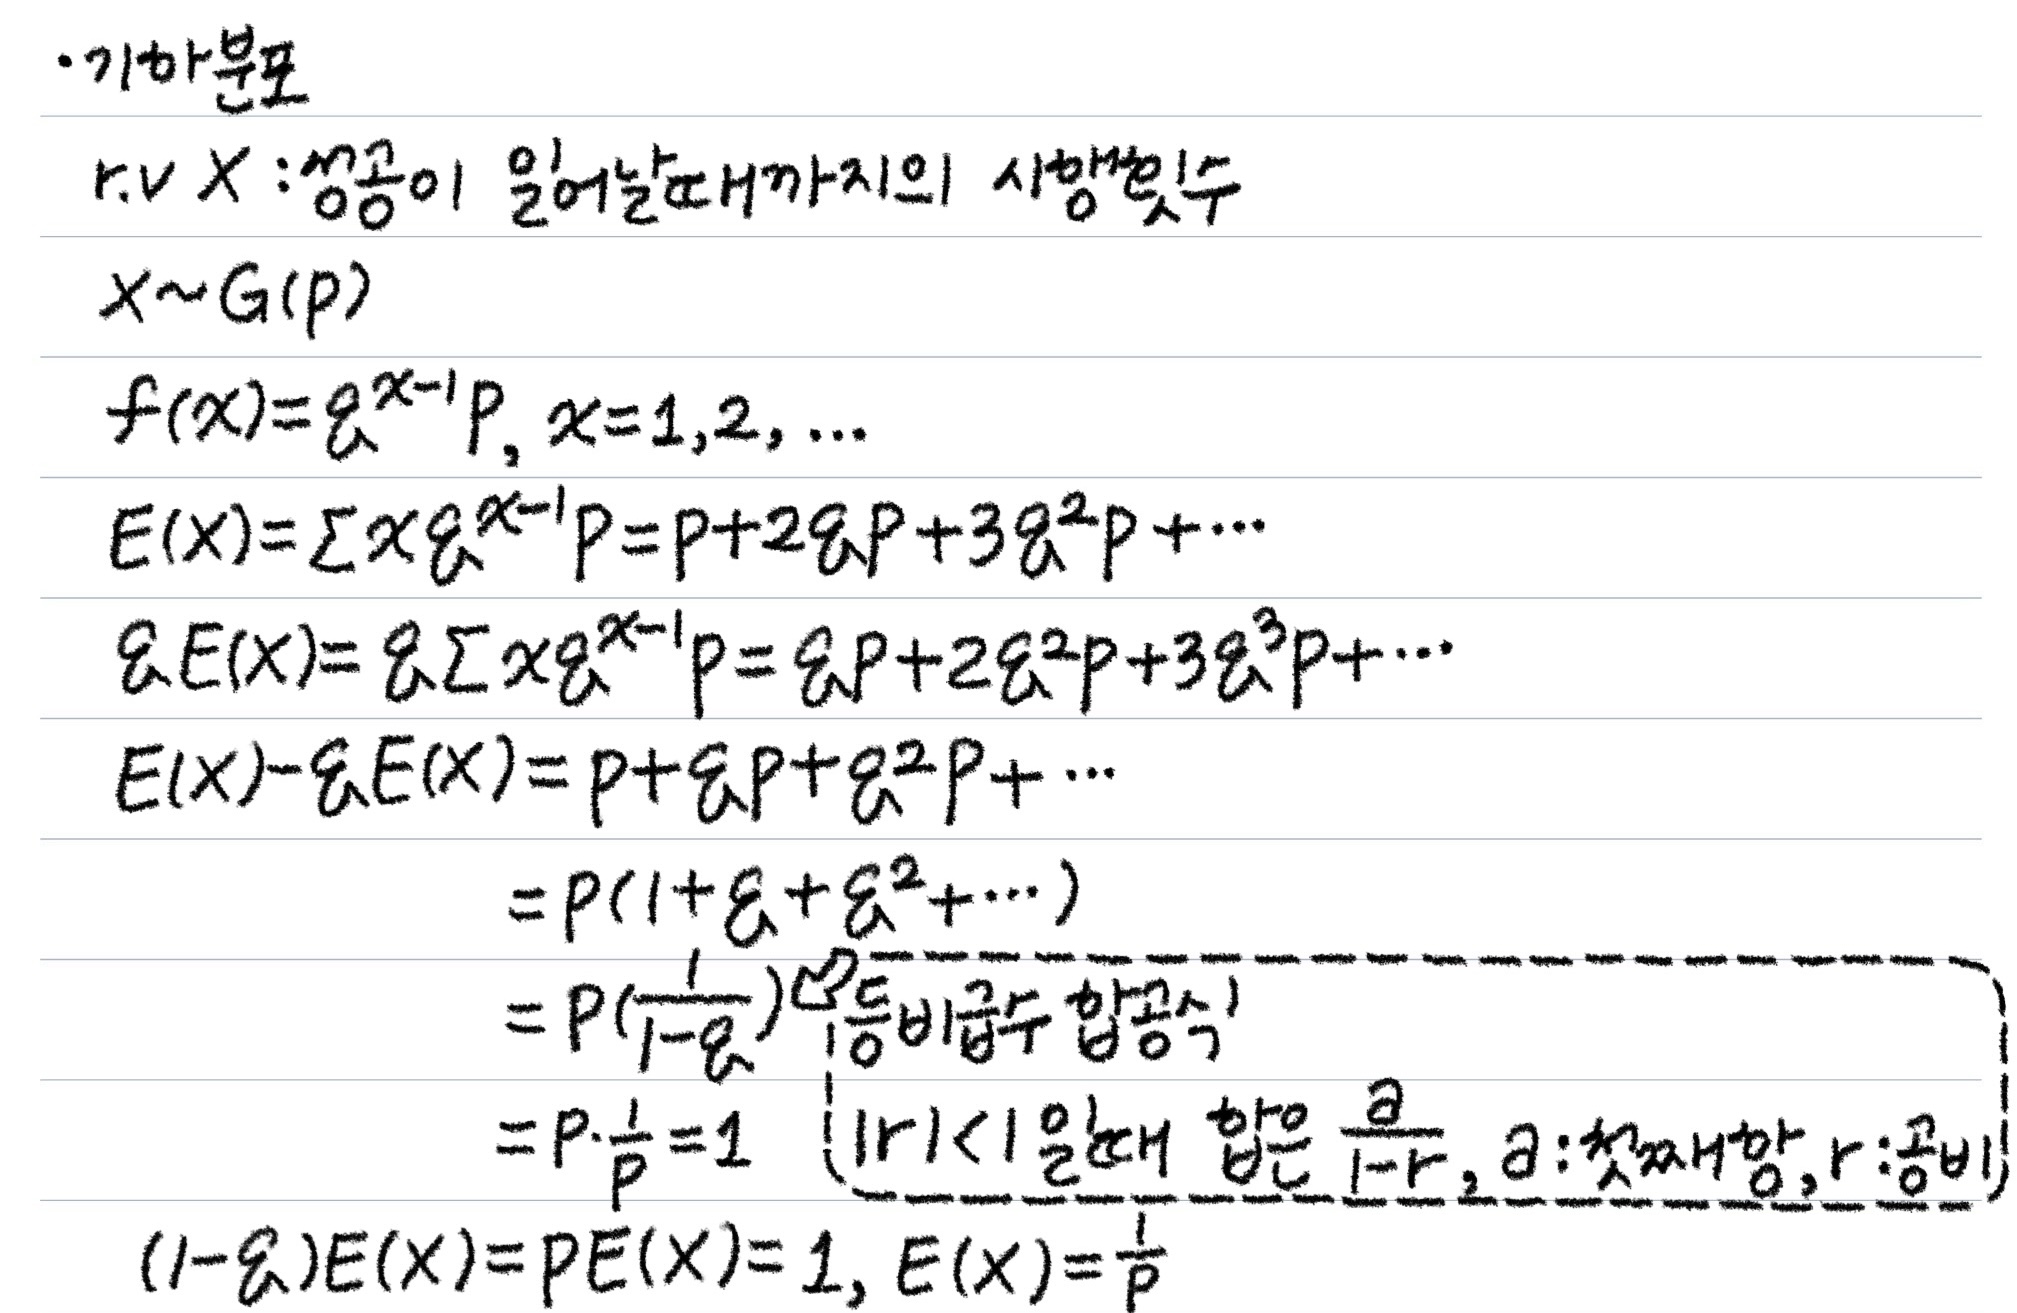 ·기하분포
r.v X : 성공이 일어날때까지의 시행횟수
X~G(p)
f(x)=q^{x-1}p, x=1,2, ...
E(X)=Σxq^{x-1}p=p+2qp+3q²p+···
qE(X)=qΣxq^{x-1}p=qp+2q²p+3q³p+···
E(X)-qE(X)=p+qp+q²p+···
=p(1+q+q²+···)
=p(1/(1-q)) ⇦ 등비급수 합공식
=p·1/p=1
|r|<1일때 합은 a/(1-r), a:첫째항, r:공비
(1-q)E(X)=pE(X)=1, E(X)=1/p